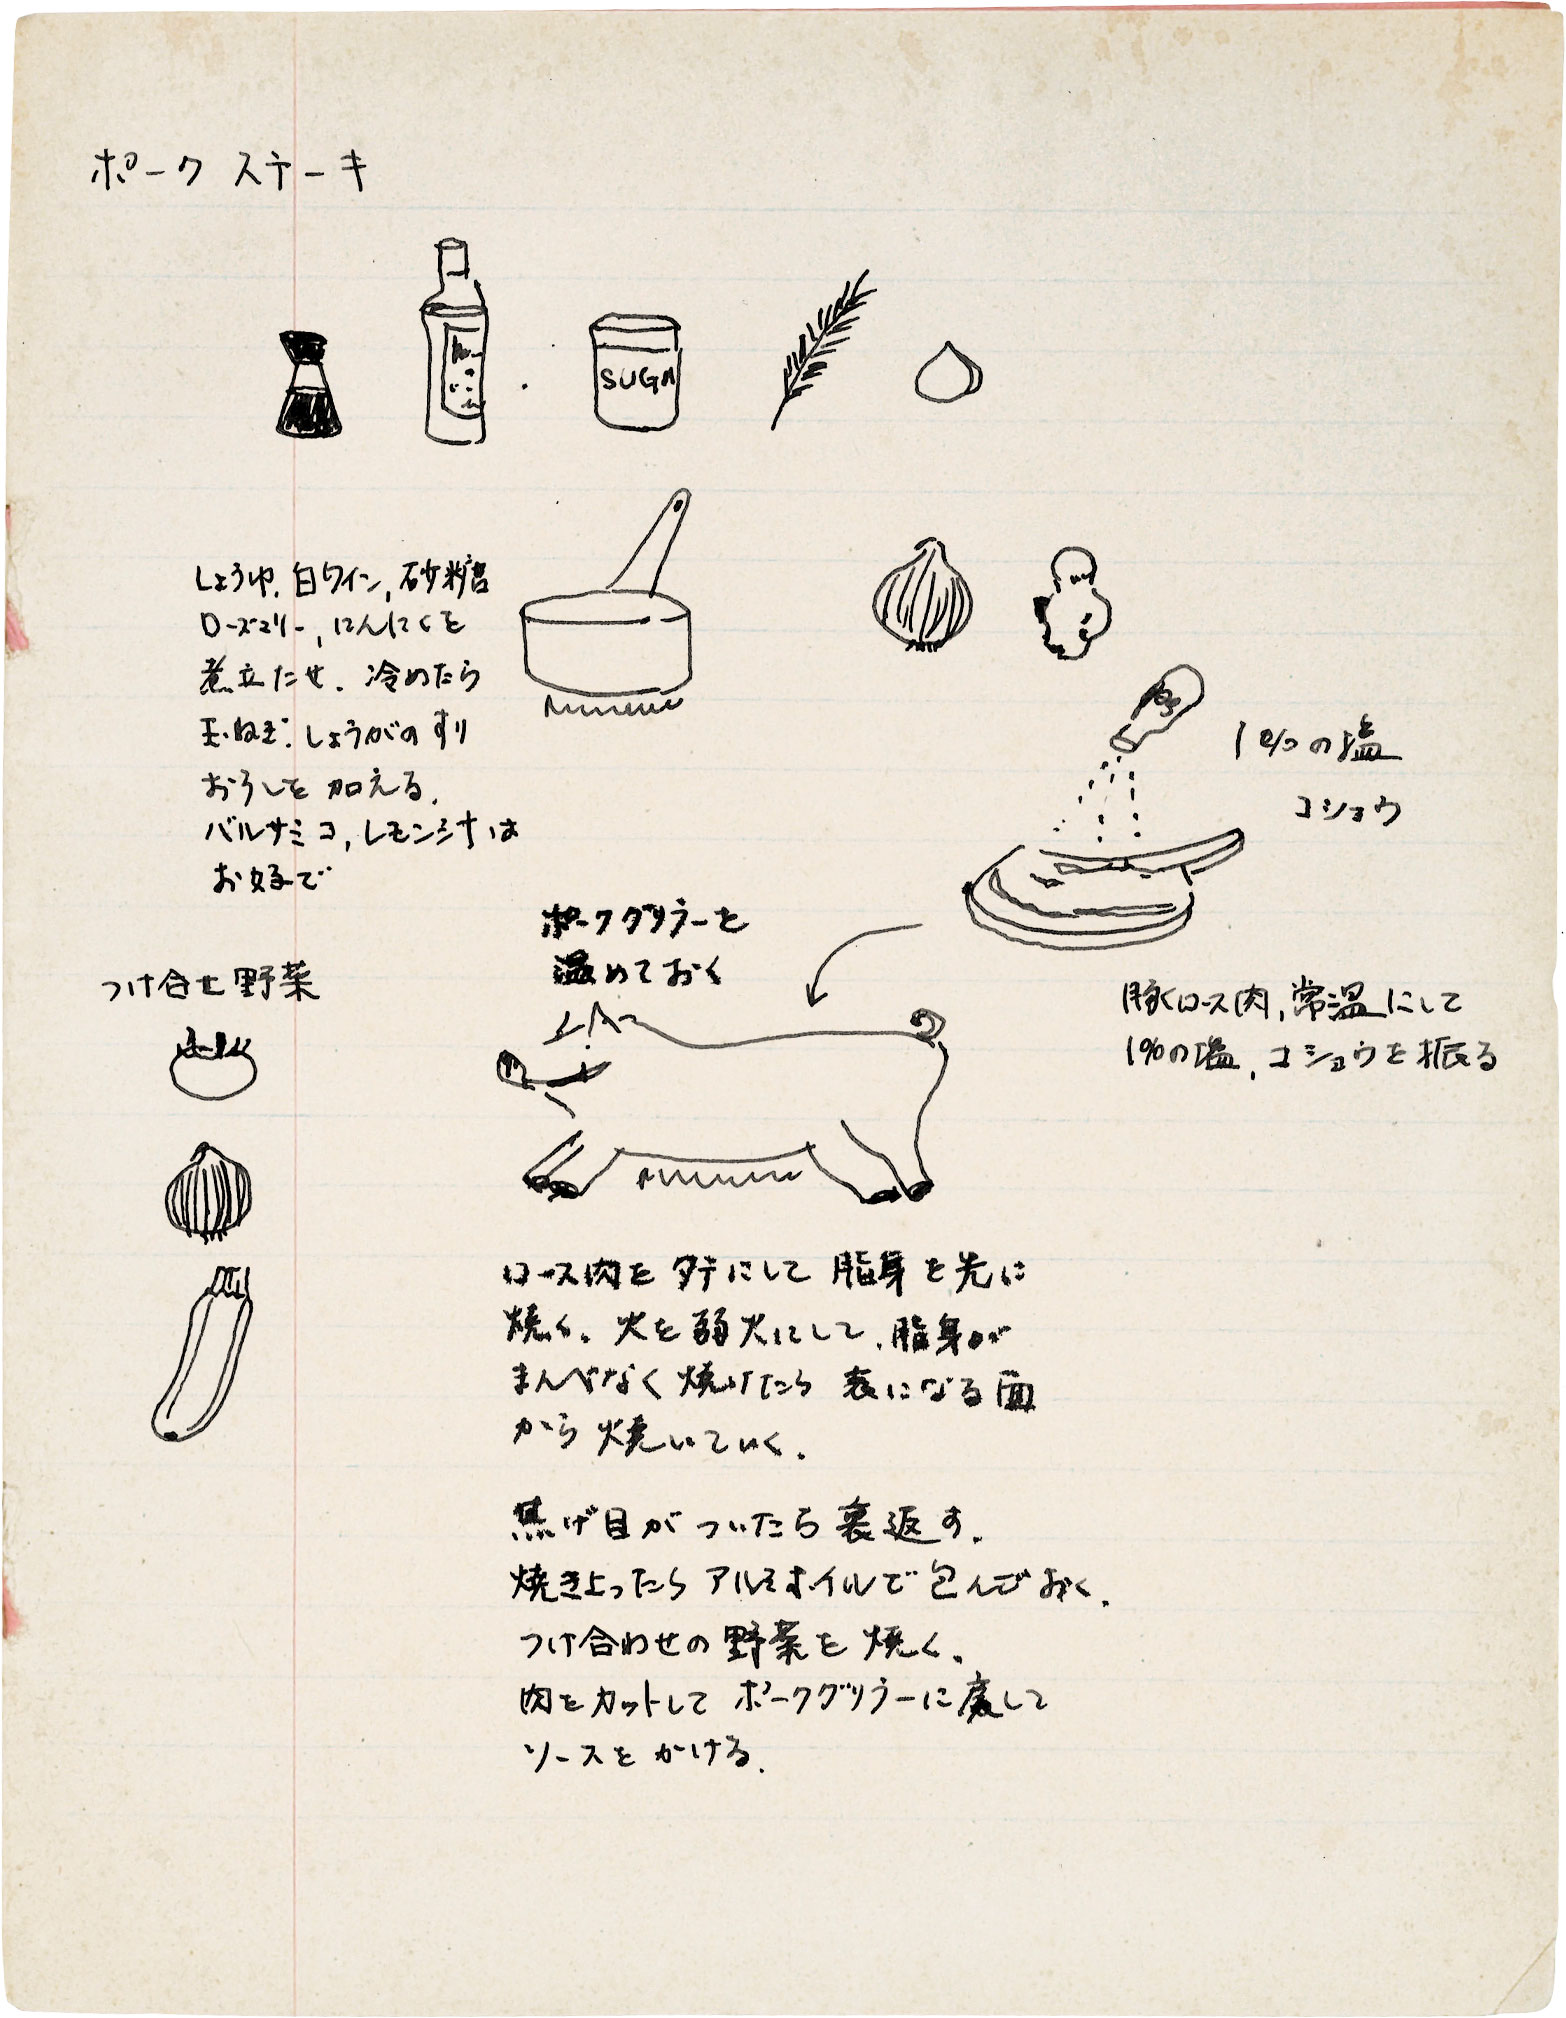 ポーク ステーキ
SUGA
しょうゆ、白ワイン、砂糖
ローズマリー、にんにくを
煮立たせ、冷めたら
玉ねぎ、しょうがのすり
おろしを加える、
バルサミコ、レモン汁は
お好で
1%の塩
コショウ
豚ロース肉、常温にして
1%の塩、コショウを振る
ポークグリラーを
温めておく
つけ合せ野菜
ロース肉をタテにして 脂身を先に
焼く、火を弱火にして、脂身が
まんべなく焼けたら 表になる面
から焼いていく、
焦げ目がついたら裏返す、
焼き上ったらアルミホイルで包んでおく、
つけ合わせの野菜を焼く、
肉をカットしてポークグリラーに戻して
ソースをかける、